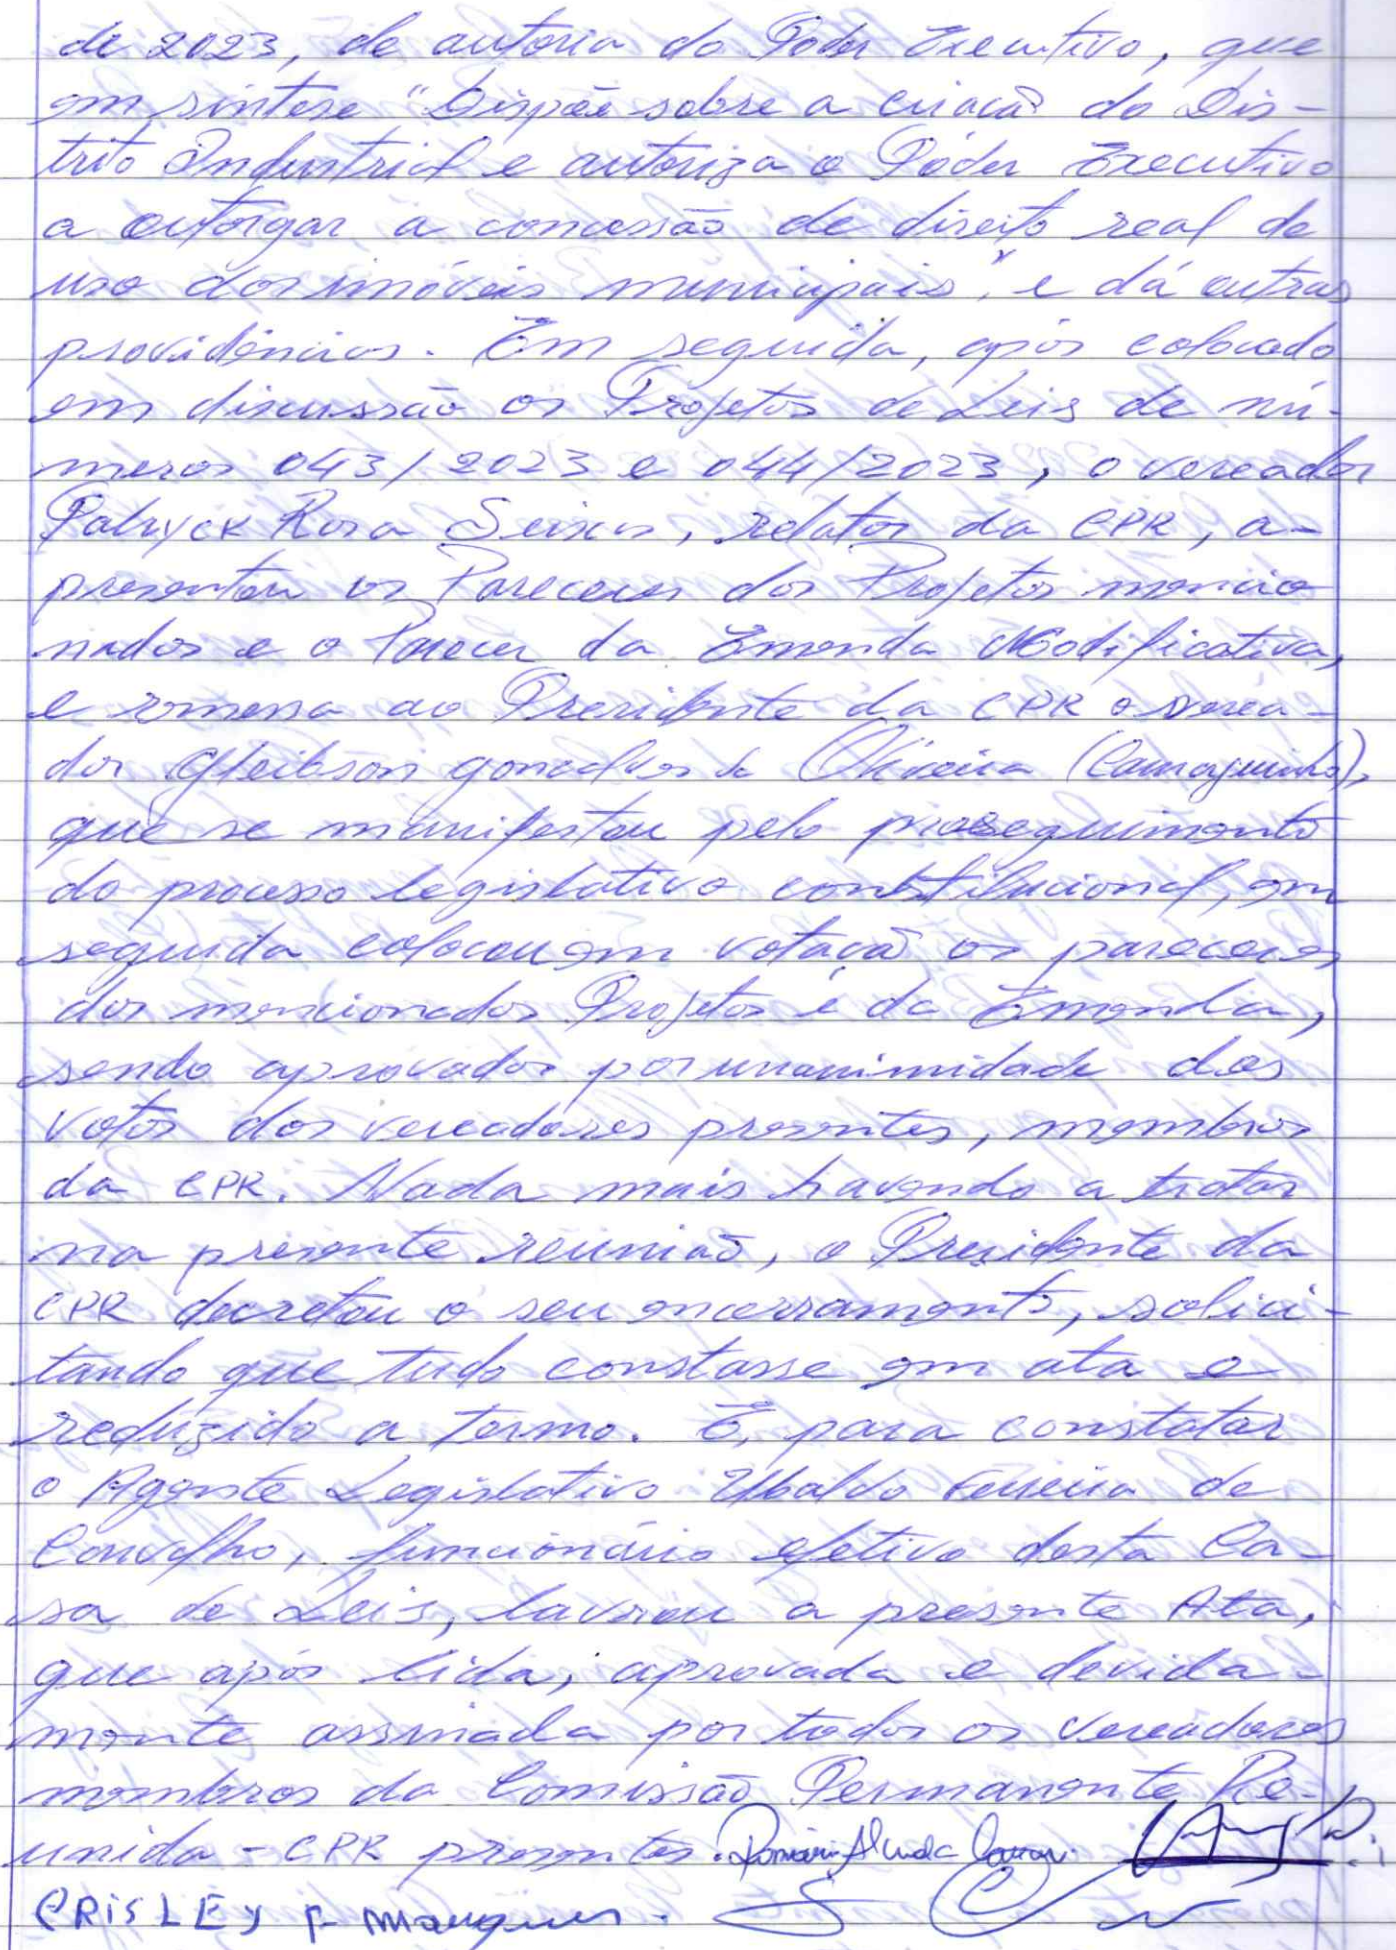 de 2023, de autoria do Poder Executivo, que
em síntese "Dispõe sobre a criação do Dis-
trito Industrial e autoriza o Poder Executivo
a outorgar a concessão de direito real de
uso dos imóveis municipais", e dá outras
providências. Em seguida, após colocado
em discussão os Projetos de Leis de nú-
meros 043/2023 e 044/2023, o vereador
Patryck Rosa Seixas, relator da CPR, a-
presentou os Pareceres dos Projetos mencio
nados e o Parecer da Emenda Modificativa,
e remessa ao Presidente da CPR o verea-
dor Gleibson Gonçalves de Oliveira (Camarguinho),
que se manifestou pelo prosseguimento
do processo legislativo constitucional, em
seguida colocou em votação os pareceres
dos mencionados Projetos e da Emenda,
sendo aprovados por unanimidade dos
votos dos vereadores presentes, membros
da CPR. Nada mais havendo a tratar
na presente reunião, o Presidente da
CPR decretou o seu encerramento, solici-
tando que tudo constasse em ata e
reduzido a termo. E, para constatar
o Agente Legislativo Ubaldo Ferreira de
Carvalho, funcionário efetivo desta Ca-
sa de Leis, lavrou a presente Ata,
que após lida, aprovada e devida-
mente assinada por todos os vereadores
membros da Comissão Permanente Re-
unida - CPR presentes.
CRISLEY F. Marques.